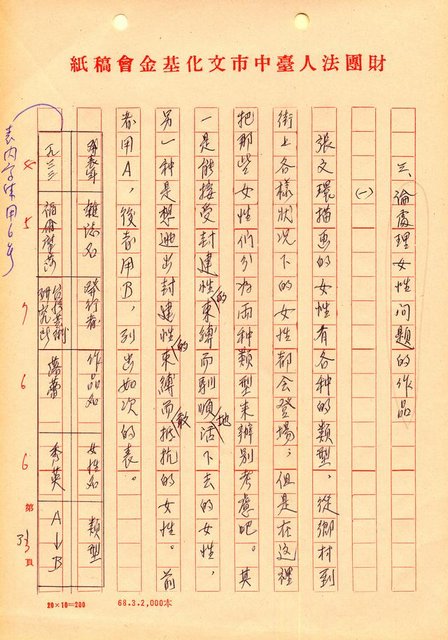 財團法人臺中市文化基金會稿紙
三、論處理女性問題的作品
(一)
張文環描画的女性有各种的類型，從鄉村到
街上各樣狀況下的女性都会登場，但是在这裡
把那些女性們分為兩种類型來辦别考慮吧。其
一是能接受封建性的束縛而馴順地活下去的女性，
另一种是想逃出封建性的束縛而敢抵抗的女性。前
者用A，後者用B，列出如次的表。
發表年 雜誌名 發行者 作品名 女性名 類型
一九三三 福爾摩莎 台灣藝術研究所 落蕾 秀英 A↓B
4 5 7 6 6
表内字体用6号
第33頁
20×10=200
68.3.2,000本